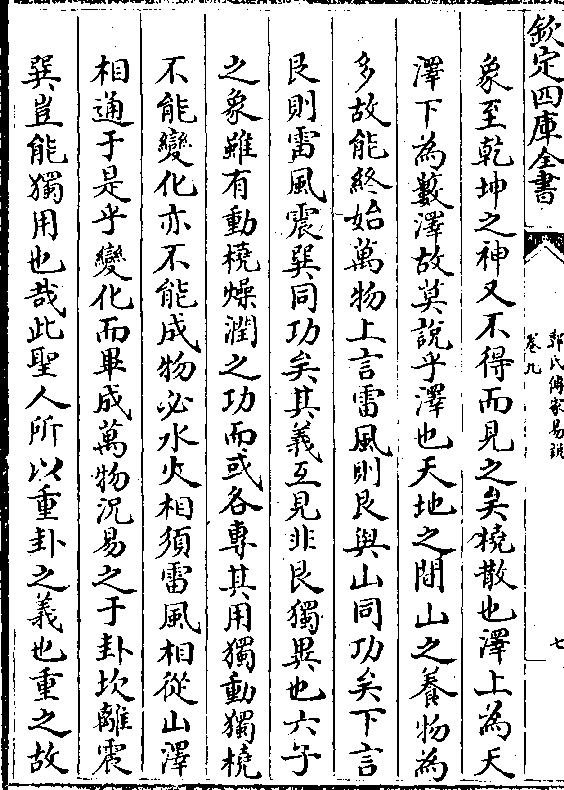 欽定四庫全書
郭氏傳家易說
卷九
七
象至乾坤之神又不得而見之矣橈散也澤上為天
澤下為藪澤故莫說乎澤也天地之間山之養物為
多故能終始萬物上言雷風則艮與山同功矣下言
艮則雷風震巽同功矣其義互見非艮獨異也六子
之象雖有動橈燥潤之功而或各專其用獨動獨橈
不能變化亦不能成物必水火相須雷風相從山澤
相通于是乎變化而畢成萬物況易之于卦坎離震
巽豈能獨用也哉此聖人所以重卦之義也重之故